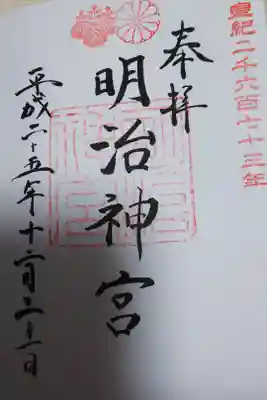 皇紀二千六百七十三年
奉拝
明治神宮
平成二十五年十二月三十一日